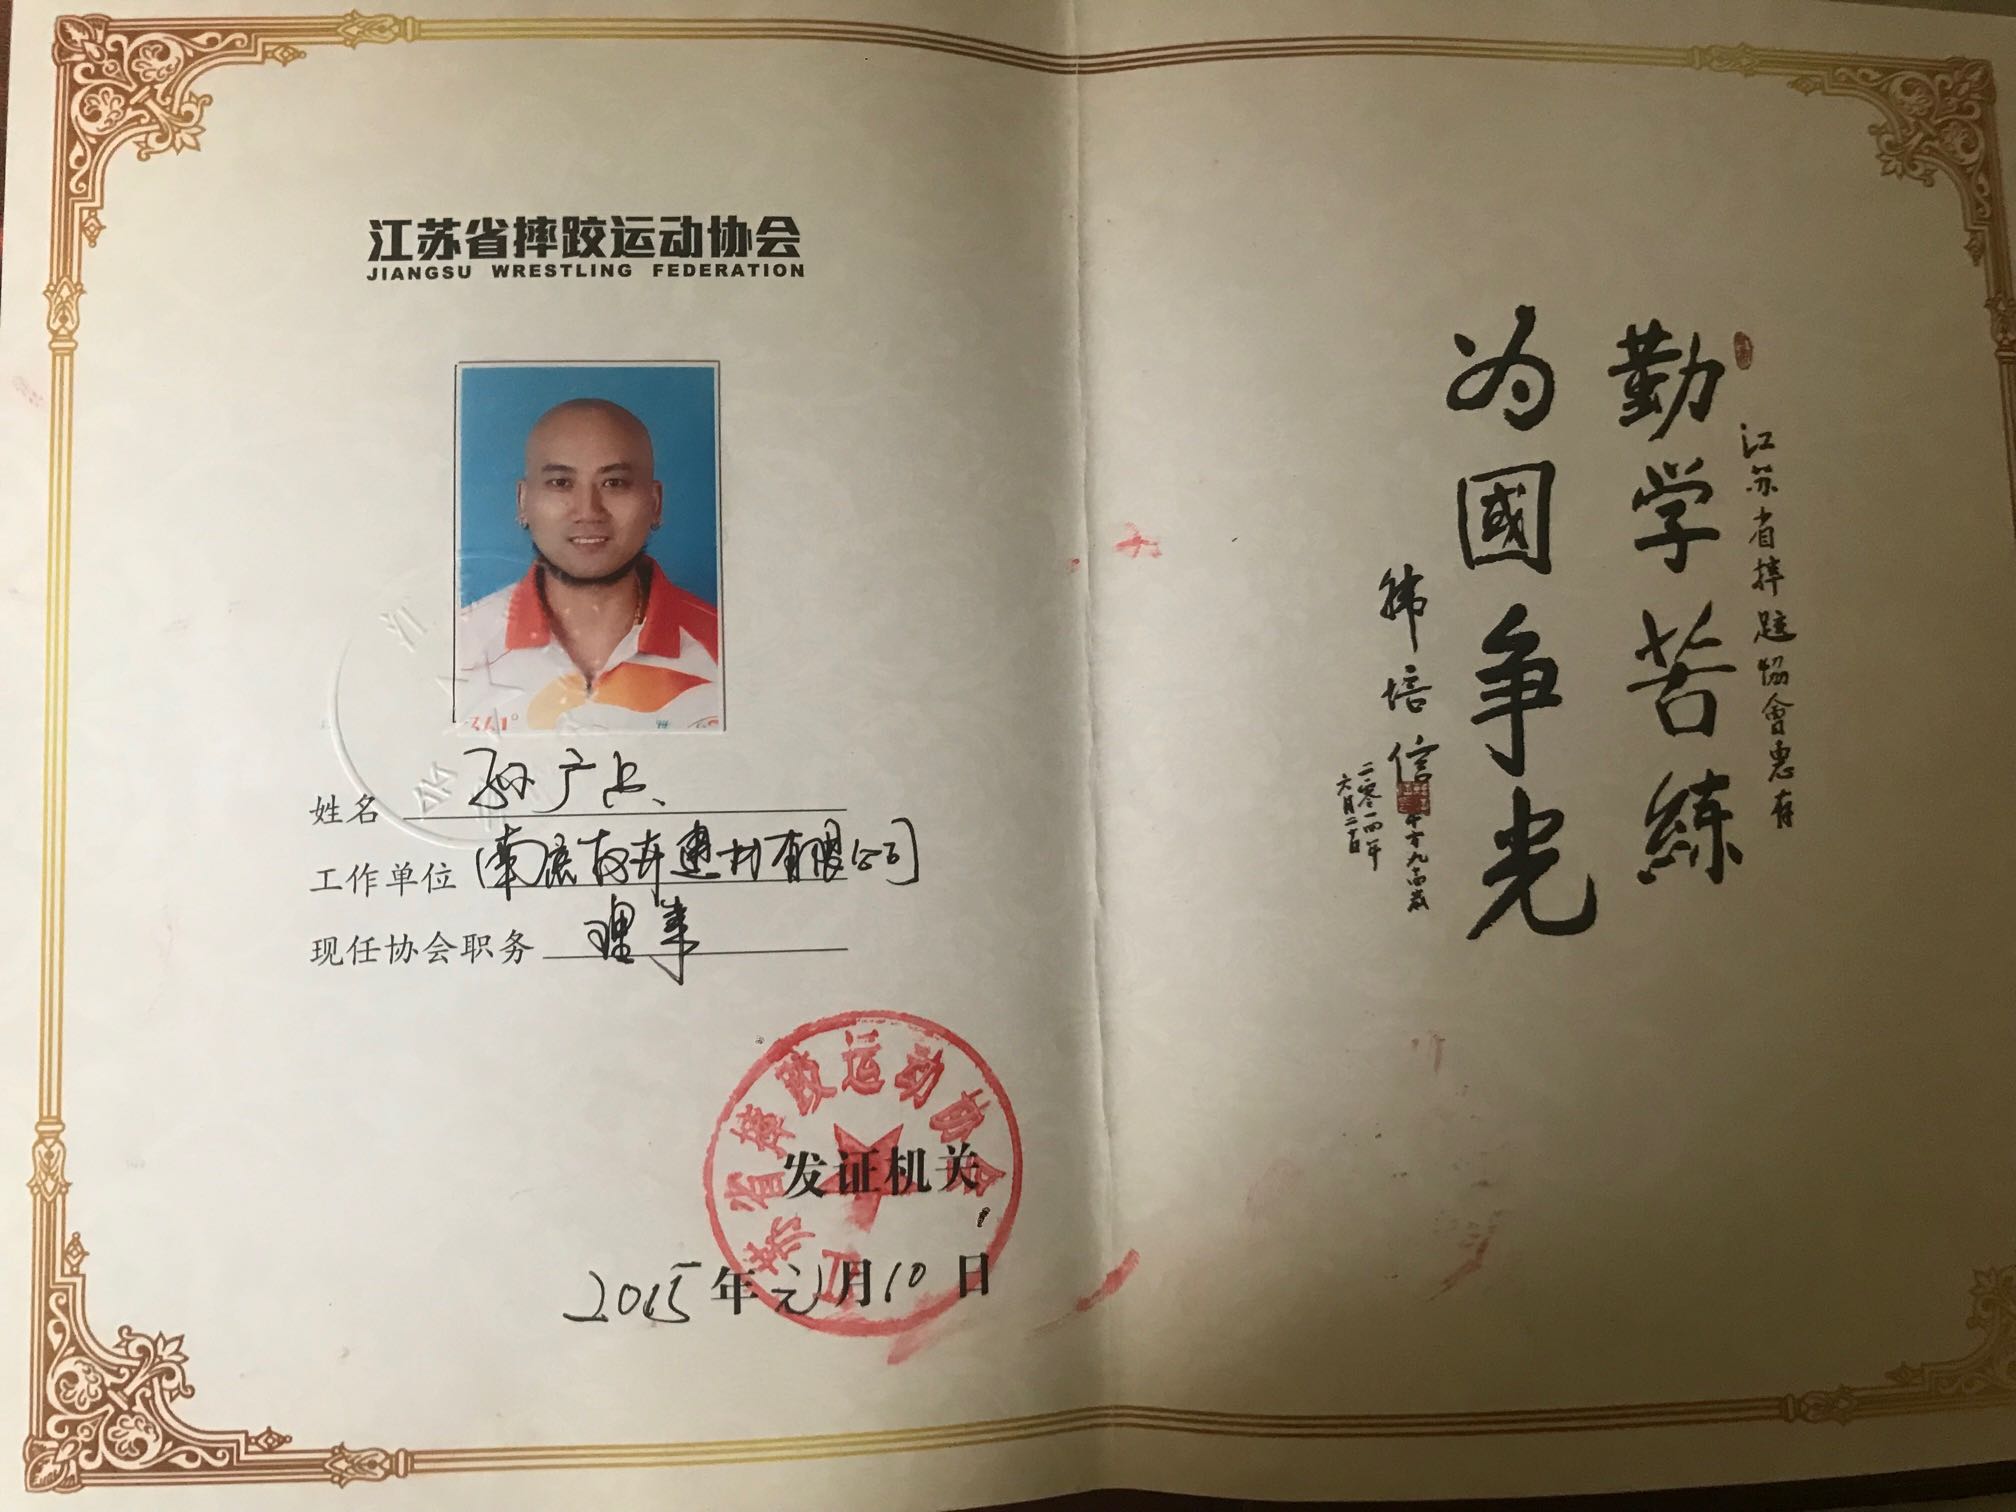 江苏省摔跤运动协会
JIANGSU WRESTLING FEDERATION
361°
姓名 孙广
工作单位 南京 建材有限公司
现任协会职务 理事
江苏省摔跤运动协会
发证机关
2015年元月10日
江苏省摔跤協會惠存
勤学苦練
为國争光
韩培信
二零一四年
六月二十日